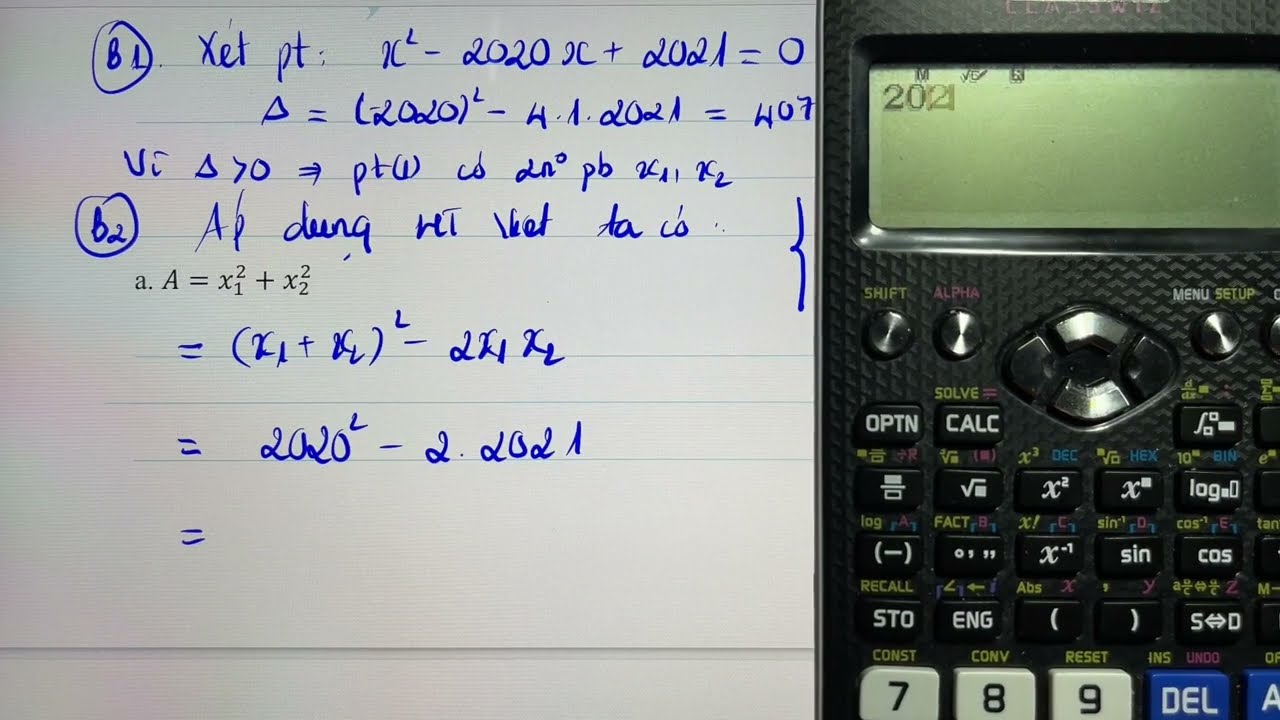 B1. Xét pt: x² - 2020x + 2021 = 0
Δ = (-2020)² - 4.1.2021 = 407
Vì Δ > 0 ⇒ pt(1) có 2n⁰ pb x₁, x₂
B2 Áp dụng HT Viet ta có :
a. A = x₁² + x₂²
= (x₁ + x₂)² - 2x₁x₂
= 2020² - 2.2021
=
CLASSWIZ
M √
202
SHIFT ALPHA MENU SETUP
SOLVE =
OPTN CALC ∫
÷R x³ DEC HEX 10 BIN e
√ x² x log
log A FACT B x! C sin⁻¹ D cos⁻¹ E tan
(−) ° ’ ” x⁻¹ sin cos
RECALL ∠ ← i Abs x , y a b/c ⇔ d/c z M−
STO ENG ( ) S⇔D
CONST CONV RESET INS UNDO OF
7 8 9 DEL A